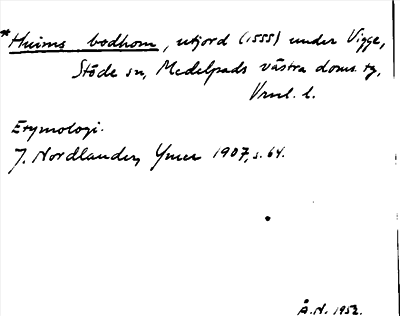 *Huims bodhom, utjord (1555) under Vigge,
Stöde sn, Medelpads västra doms. tg,
Vrml. l.
Etymologi.
J. Nordlander, Ymer 1907, s. 64.
Å.N. 1952.